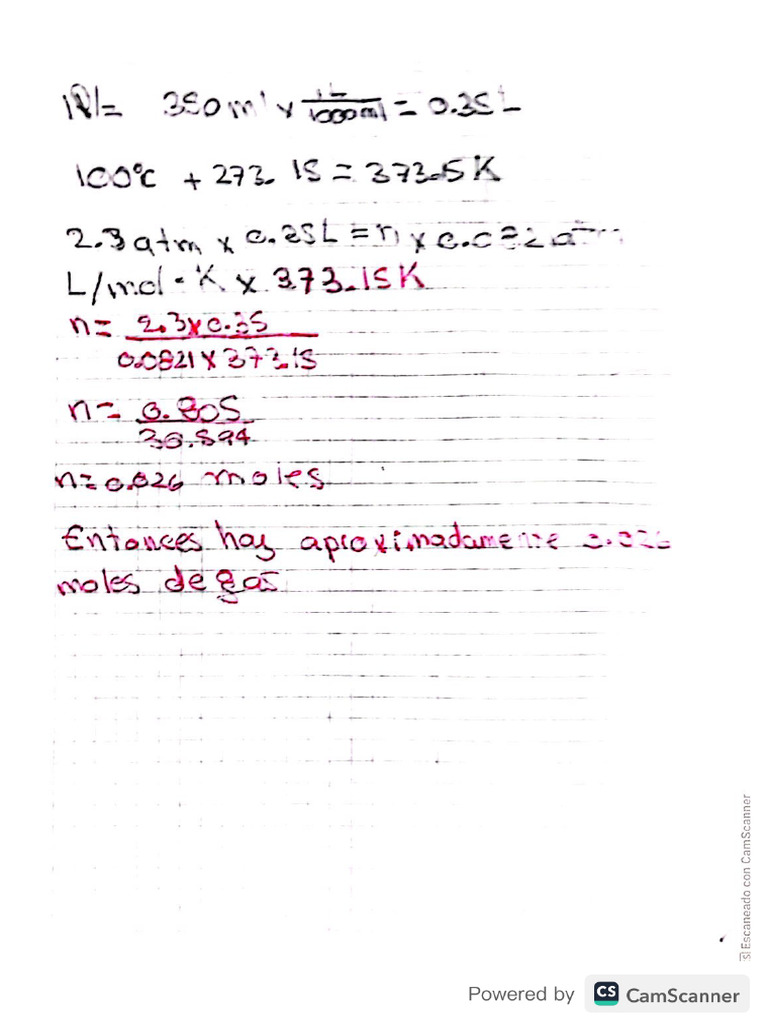 350 ml x 1L/1000ml = 0.35 L
100°c + 273.15 = 373.5 K
2.3 atm x 0.35L = n x
L/mol · K x 373.15 K
n = 2.3x0.35
0.0821 x 373.15
n = 0.805
n = 0.026 moles
Entonces hay aproximadamente 0.026
moles de gas
Escaneado con CamScanner
Powered by CS CamScanner